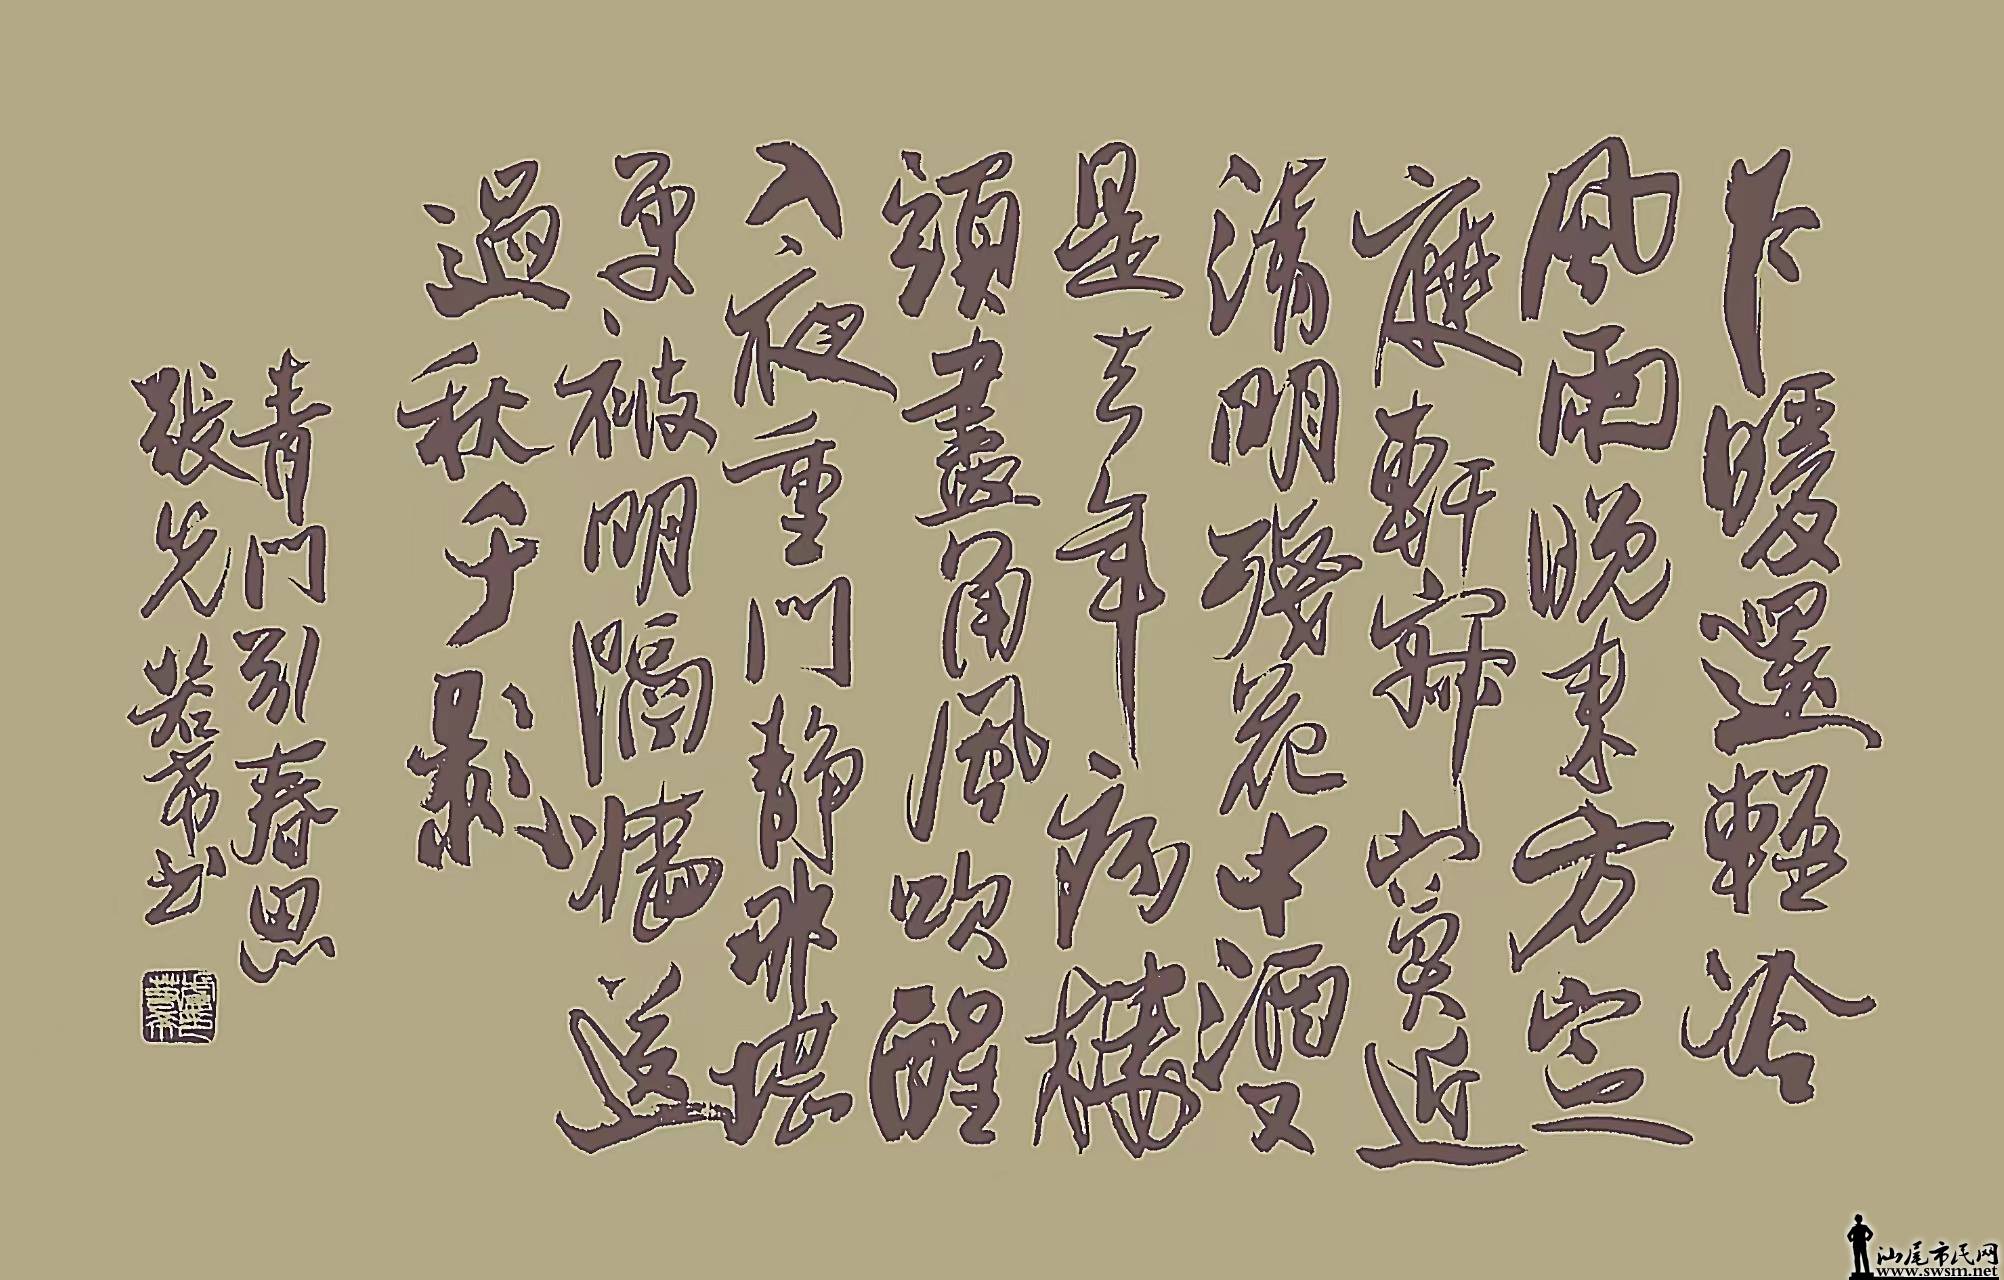 乍暖還輕冷
风雨晚来方定
庭軒寂寞近
清明殘花中酒又
是去年病楼
頭畫角風吹醒
入夜重門静那堪
更被明隔墙送
過秋千影
青门引春思
張先 若希书
汕尾市民网
www.swsm.net